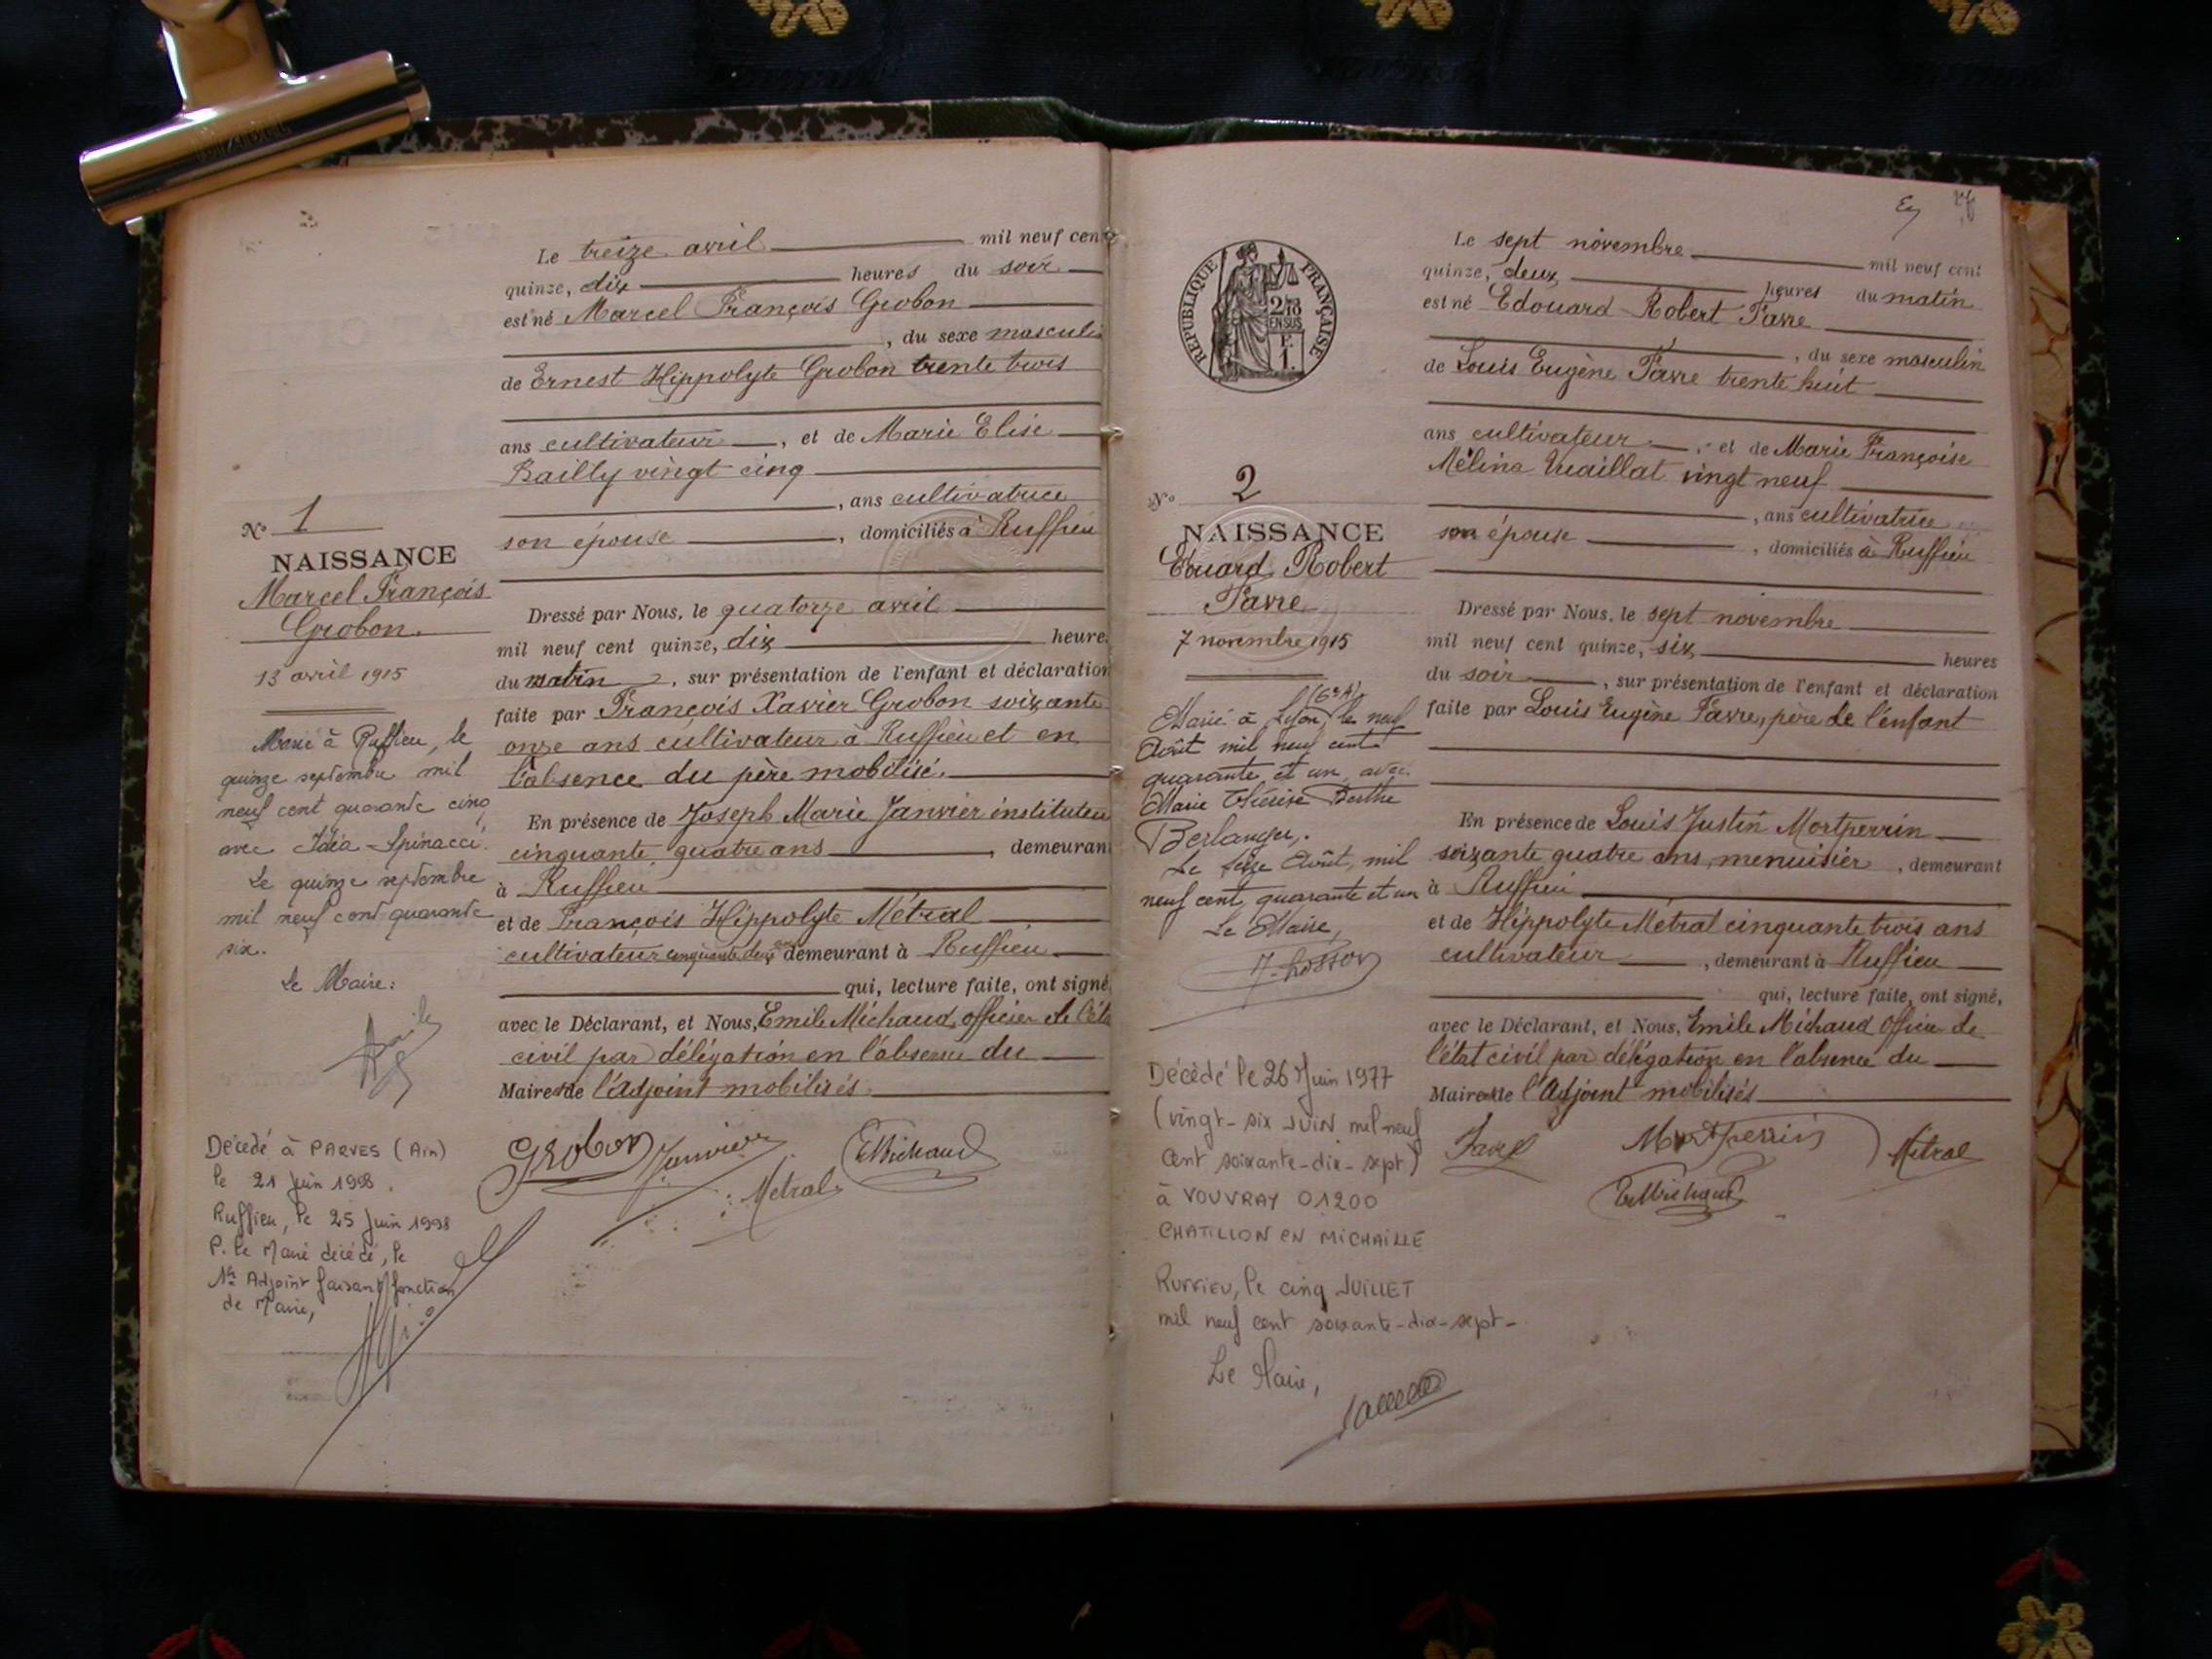 Le treize avril mil neuf cent
quinze, dix heures du soir
est né Marcel François Grobon
, du sexe masculin
de Ernest Hippolyte Grobon trente trois
ans cultivateur , et de Marie Elise
Bailly vingt cinq
, ans cultivatrice
son épouse , domiciliés à Ruffieu
Dressé par Nous, le quatorze avril
mil neuf cent quinze, dix heures
du matin , sur présentation de l'enfant et déclaration
faite par François Xavier Grobon soixante
onze ans cultivateur à Ruffieu et en
l'absence du père mobilisé.
En présence de Joseph Marie Janvier instituteu
cinquante quatre ans , demeuran
à Ruffieu
et de François Hippolyte Métral
cultivateur cinquante deux ans demeurant à Ruffieu
qui, lecture faite, ont signé,
avec le Déclarant, et Nous, Emile Michaud, officier de l'éta
civil par délégation en l'absence du
Maire et de l'adjoint mobilisés.
Grobon Janvier EMichaud
Metral
No 1
NAISSANCE
Marcel François
Grobon.
13 avril 1915
Marié à Ruffieu, le
quinze septembre mil
neuf cent quarante cinq
avec Idéa Spinacci.
Le quinze septembre
mil neuf cent quarante
six.
Le Maire:
Décédé à PARVES (Ain)
le 21 Juin 1998.
Ruffieu, le 25 Juin 1998
P. le Maire décédé, le
1er Adjoint faisant fonction
de Maire,
RÉPUBLIQUE FRANÇAISE
2/10
EN SUS
F.
1.
No 2
NAISSANCE
Edouard Robert
Favre
7 novembre 1915
Marié à Lyon (6e A), le neuf
Août mil neuf cent
quarante et un, avec
Marie Thérèse Berthe
Berlanger.
Le seize Août, mil
neuf cent quarante et un
Le Maire,
Décédé le 26 Juin 1977
(vingt-six JUIN mil neuf
cent soixante-dix-sept)
à VOUVRAY 01200
CHATILLON EN MICHAILLE
RUFFIEU, le cinq JUILLET
mil neuf cent soixante-dix-sept-
Le Maire,
Le sept novembre mil neuf cent
quinze, deux heures du matin
est né Edouard Robert Favre
, du sexe masculin
de Louis Eugène Favre trente huit
ans cultivateur , et de Marie Françoise
Mélina Vuaillat vingt neuf
, ans cultivatrice
son épouse , domiciliés à Ruffieu
Dressé par Nous, le sept novembre
mil neuf cent quinze, six heures
du soir , sur présentation de l'enfant et déclaration
faite par Louis Eugène Favre, père de l'enfant
En présence de Louis Justin Montperrin
soixante quatre ans, menuisier , demeurant
à Ruffieu
et de Hippolyte Métral cinquante trois ans
cultivateur , demeurant à Ruffieu
qui, lecture faite, ont signé,
avec le Déclarant, et Nous, Emile Michaud Officier de
l'état civil par délégation en l'absence du
Maire et de l'Adjoint mobilisés
Favre Montperrin Métral
EMichaud